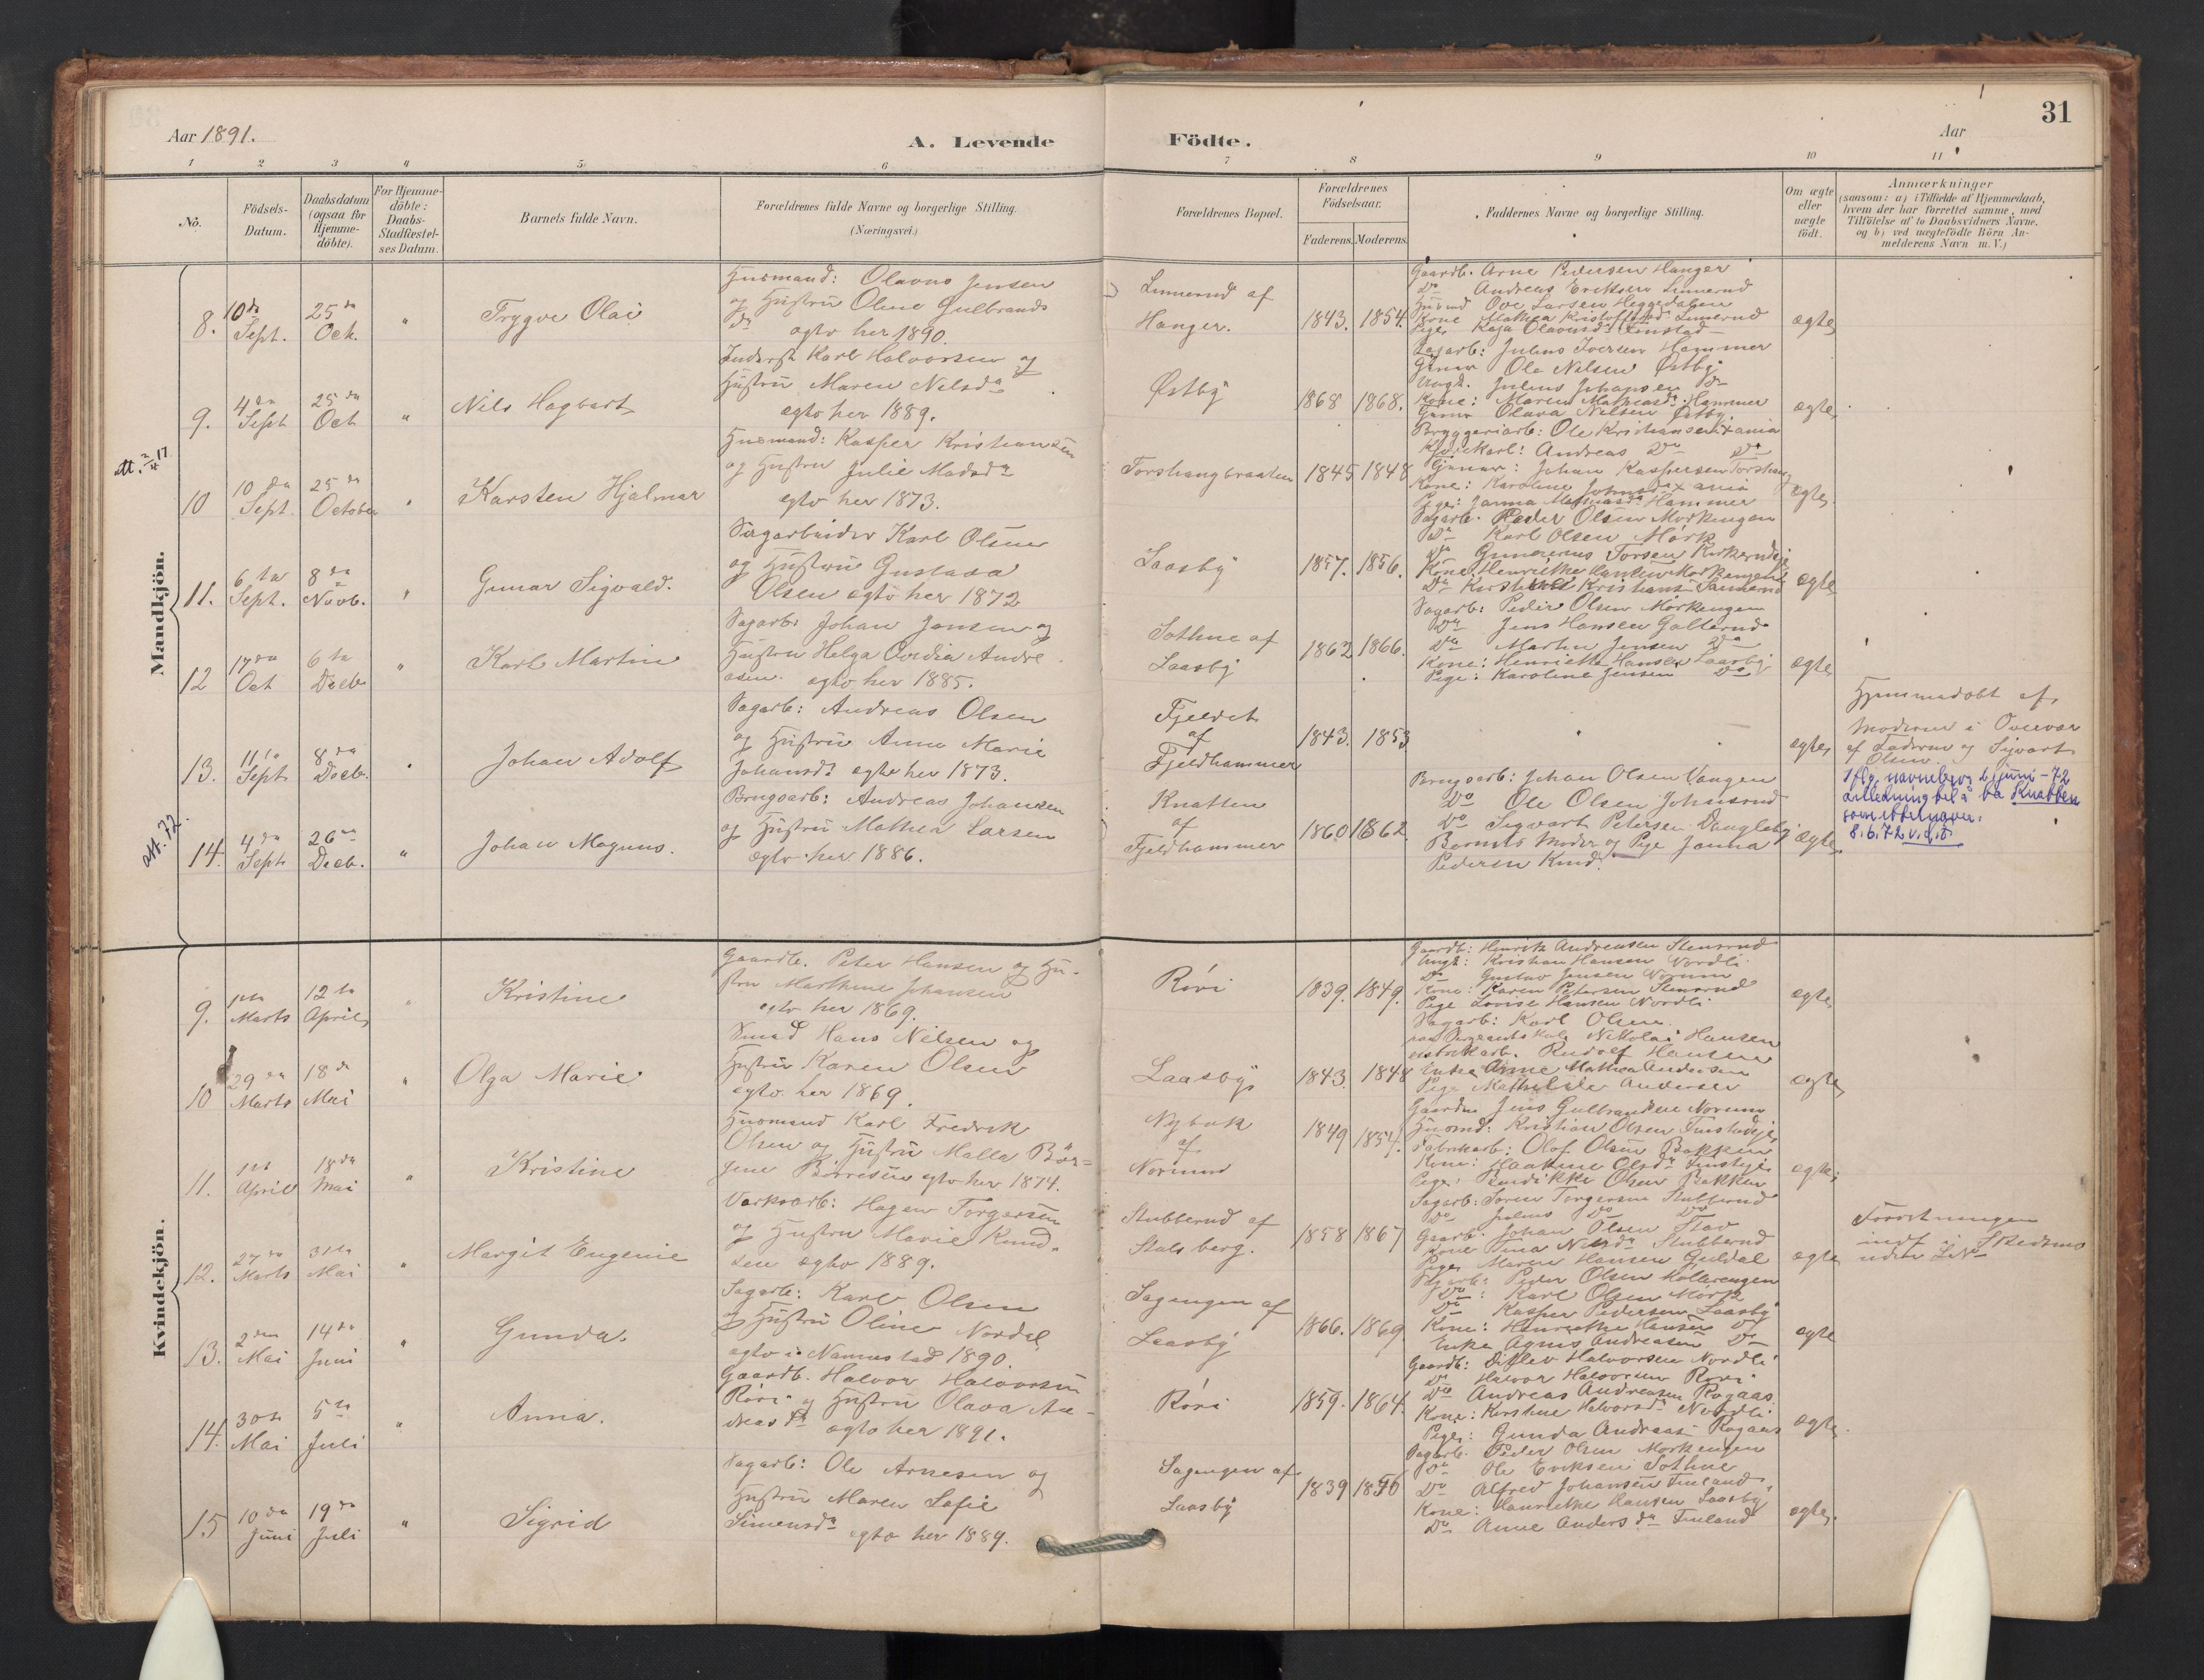 31
Aar 1891.
A. Levende Födte.
Aar
1 2 3 4 5 6 7 8 9 10 11
No.
Födsels-Datum.
Daabsdatum (ogsaa for Hjemme-döbte).
For Hjemme-döbte: Daabs-Stadfæstel-ses Datum.
Barnets fulde Navn.
Forældrenes fulde Navne og borgerlige Stilling. (Næringsvei.)
Forældrenes Bopæl.
Forældrenes Födselsaar.
Faderens. Moderens.
Faddernes Navne og borgerlige Stilling.
Om ægte eller uægte födt.
Anmærkninger
(saasom: a) i Tilfælde af Hjemmedaab,
hvem der har forrettet samme, med
Tilföielse af to Daabsvidners Navne,
og b) ved uægtefödte Börn An-
melderens Navn m. V.)
Mandkjön.
8. 10de Sept. 25de Oct. " Trygve Olai
Husmand: Olavus Jensen
og Hustru Oline Gulbrands
Dr ægtv her 1890.
Linnerud af
Hanger.
1843. 1854.
Gaardb. Arne Pedersen Hanger
Do Andreas Eriksen Linnerud
Husmd Ove Larsen Heggedalen
Kone Mathea Kristoffersd Linnerud
Pige Kaja Olavusdr Finstad
ægte
9. 4de Sept 25de Oct " Nils Hagbart
Inderst Karl Halvorsen og
Hustru Maren Nilsdr
ægtv her 1889.
Østby
1868 1868.
Sagarb: Julius Iversen Hammer
Ole Nilsen Østby
Ungk. Julius Johansen Do
Kone: Maren Mathiasdr Hammer
Olava Nilsen Østby.
ægte
att. 2/4 17
10 10de Sept. 25de October " Karsten Hjalmar
Husmand: Kasper Kristiansen
og Hustru Julie Madsdr
ægtv her 1873.
Torshangbraaten
1845 1848
Bryggeriarb: Ole Kristiansen Xania
Andreas Do Do
Johan Kaspersen Torshaug
Kone: Karoline Johnsdr Xania
Pige: Janna Hammer
ægte.
11. 6te Sept. 8de Novb. " Gunar Sigvald.
Sagarbeider Karl Olsen
og Hustru Gustava
Olsen ægtv her 1872
Laasby
1857. 1856.
Sagarb. Peder Olsen Morkengen
Do Karl Olsen Mørk
Do Gunerius Torsen
Kone: Henriette Hansen Morkengen
Do
ægte
12 17de Oct 6te Decb. " Karl Martin
Sagarb: Johan Jensen og
Hustru Helga Ovedia Andre
asen. ægtv her 1885.
Sothue af
Laasby
1862 1866.
Sagarb: Peder Olsen Mørkengen
Do Jens Hansen Galterud
Do Martin Jensen Do
Kone: Henriette Hansen Laasby
Pige: Karoline Jensen Do
ægte
13. 11te Sept 8de Decb. " Johan Adolf
Sagarb: Andreas Olsen
og Hustru Anne Marie
Johansdr ægtv her 1873.
Fjeldet
af
Fjeldhammer
1843. 1853
ægte
Hjemmedøbt af
Moderen i Overvær
af Faderen og Sigvart
Olsen
att. 72.
14. 4de Sept 26de Decb. " Johan Magnus.
Brugsarb: Andreas Johansen
og Hustru Mathea Larsen
ægtv her 1886.
Knatten
af
Fjeldhammer
1860 1862
Brugsarb: Johan Olsen Vangen
Do Ole Olsen Johnsrud
Do Sigvart Petersen Daugleby
Barnets Moder og Pige Janna
Pedersen Rud.
ægte
Iflg. navnebevis 6 juni-72
anledning til å ta Knatten
som etternavn.
8.6.72
Kvindekjön.
9. 1ste Marts 12te April " Kristine
Gaardb. Peter Hansen og Hu-
stru Marthine Johansen
ægtv her 1869.
Røvi
1839. 1849.
Gaardb: Henrik Andreasen Stensrud
Ungk: Kristian Hansen Nordli
Do Gustav Jensen Norum
Kone: Karen Petersen Stensrud
Pige Lovise Hansen Nordli
ægte
10 29de Marts 18de Mai " Olga Marie
Smed Hans Nilsen og
Hustru Karen Olsen
ægtv her 1869.
Laasby
1843. 1848
Sagarb: Karl Olsen.
Nikolai Hansen
Rudolf Hansen
Enke Anne Mathea Andersen
Pige Mathilde Andersen
ægte
11. 1ste April 18de Mai " Kristine
Husmand Karl Fredrik
Olsen og Hustru Malla Bør=
gine Børresen ægtv her 1874.
Nybak
af
Norum
1849 1854.
Gaardm Jens Gulbrandsen Norum
Husmd: Kristian Olsen Finstadeje
Fabrikarb: Olaf Olsen Bakken
Kone: Olsdr
Pige: Bendikke Olsen Bakken
ægte
12. 27de Marts 31te Mai " Margit Eugenie
Verksarb: Hagen Torgersen
og Hustru Marie Knud-
sen ægtv 1889.
Stubberud af
Stalsberg.
1858 1867
Sagarb: Søren Torgersen Stubberud
Do Julius Do Do
Gaarb: Johan Olsen Stav
Kone Tina Nilsdr Stubberud
Pige Maren Hansen Guldal
ægte
i Skedsmo
13. 2den Mai 14de Juni " Gunda.
Sagarb: Karl Olsen
og Hustru Oline Nordal
ægtv i Nannestad 1890.
Sagengen af
Laasby
1866. 1869
Sagarb: Peder Olsen Møllerengen
Do: Karl Olsen Mørk
Do Kasper Pedersen Laasby
Kone: Henriette Hansen Do
Enke Agnes Andreasen Do
ægte
14. 30te Mai 5te Juli " Anna.
Gaardb. Halvor Halvorsen
Røvi og Hustru Olava An-
dreasdr ægtv her 1891.
Røvi
1859. 1864.
Gaardb: Ditlev Halvorsen Nordli
Do Halvor Halvorsen Rovi
Do Andreas Andreasen Rogaas
Kone: Kirstine Halvorsdr Nordli
Pige: Gunda Andreas. Rogaas
ægte.
15 10de Juni 19de Juli " Sigrid
Sagarb: Ole Arnesen og
Hustru Maren Sofie
Simensdr ægtv her 1889.
Sagengen af
Laasby
1839 1856
Sagarb. Peder Olsen Morkengen
Do Ole Eriksen Sothue
Do Alfred Johansen Finland
Kone: Henriette Hansen Laasby
Do Anne Andersdr Finland
ægte.